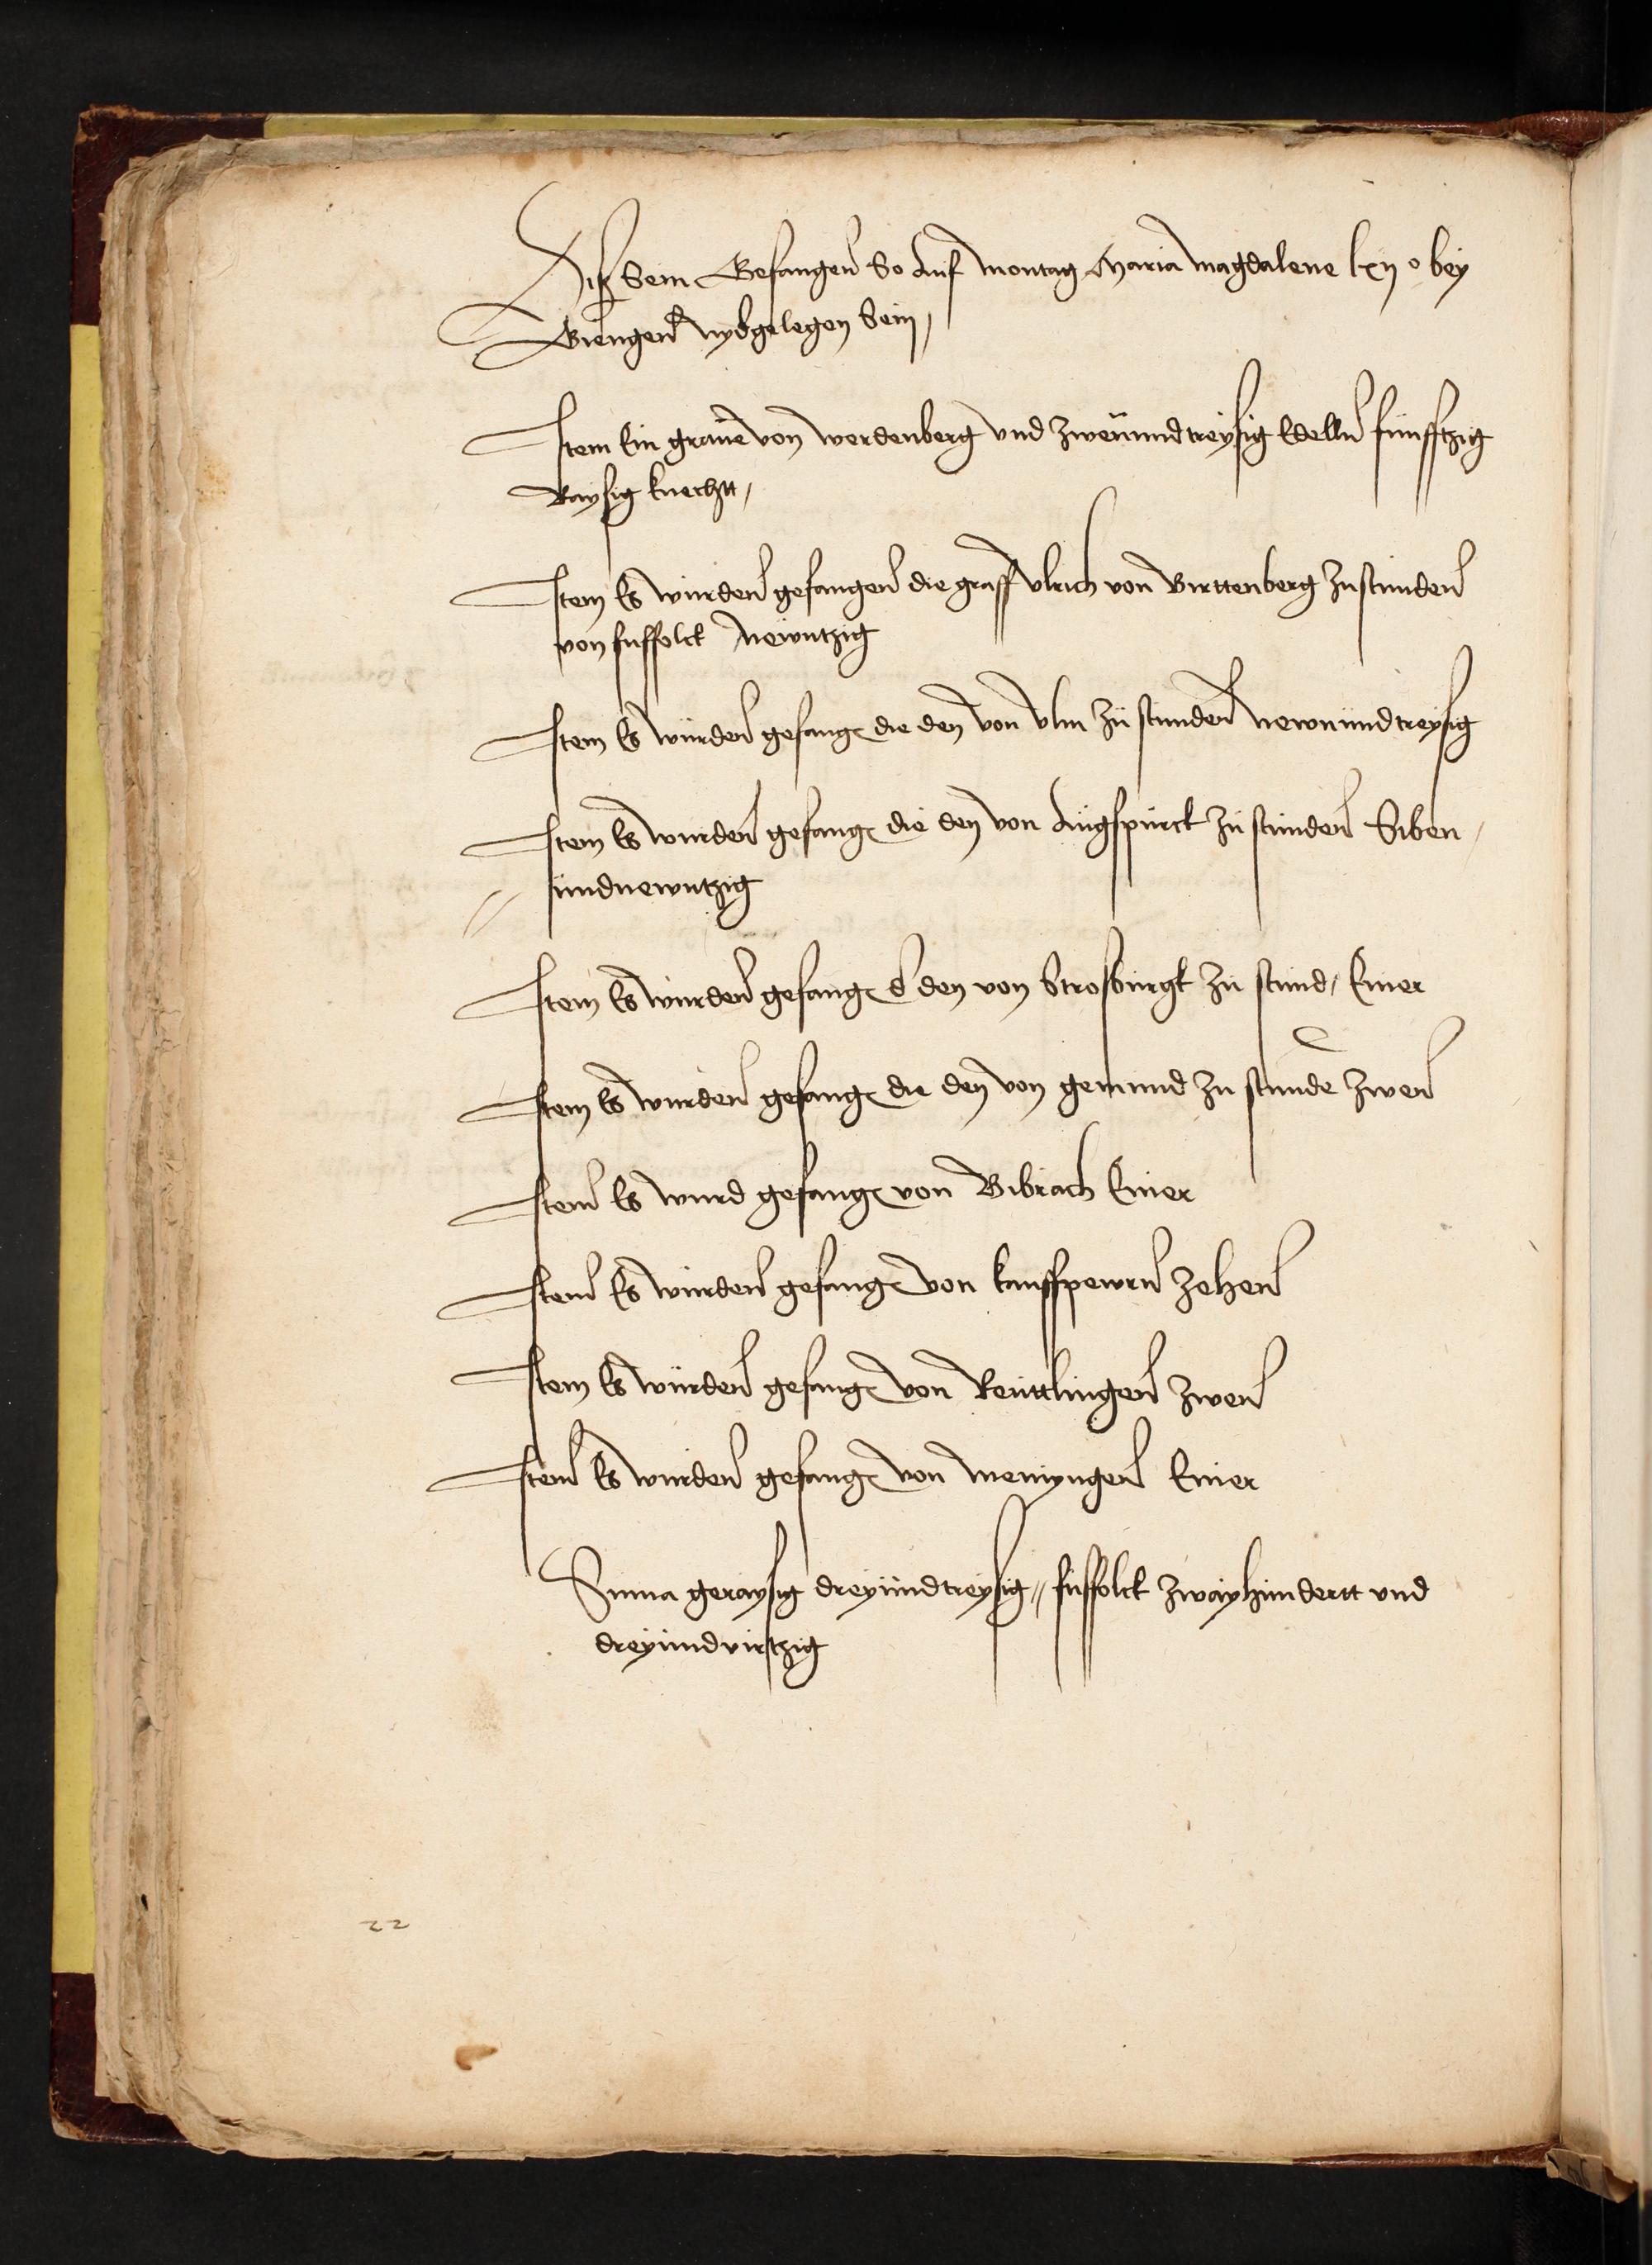 Diß sein Gefangen so auf montag Maria magdalene lxij o bey
Giengen nydgelegen sein,
Item Ein graue von werdenberg vnd zweüundtreysig Edelln fünfftzig
Raysig knechtt,
Item Es wurden gefangen die graff vlrich von Wirttenberg zustunden
von fusfolck Newntzig
Item Es würden gefang die den von vlm zü stunden newnundtreysig
Item Es wurden gefang die den von Augspürck zu stunden Siben
undnewntzig
Item Es wurden gefang d den von Strosburgk zu stund, Einer
Item Es wurden gefang die den von gemund zu stunde zwen
Item Es wurd gefang von Bibrach Einer
Item Es würden gefang von kauffpewrn zehen
Item Es würden gefang von Reuttlingen zwen
Item Es wurden gefang von memyngen Einer
Suma geraysig dreyundtreysig, fusfolck zwayhundertt vnd
dreyundvirtzig
22